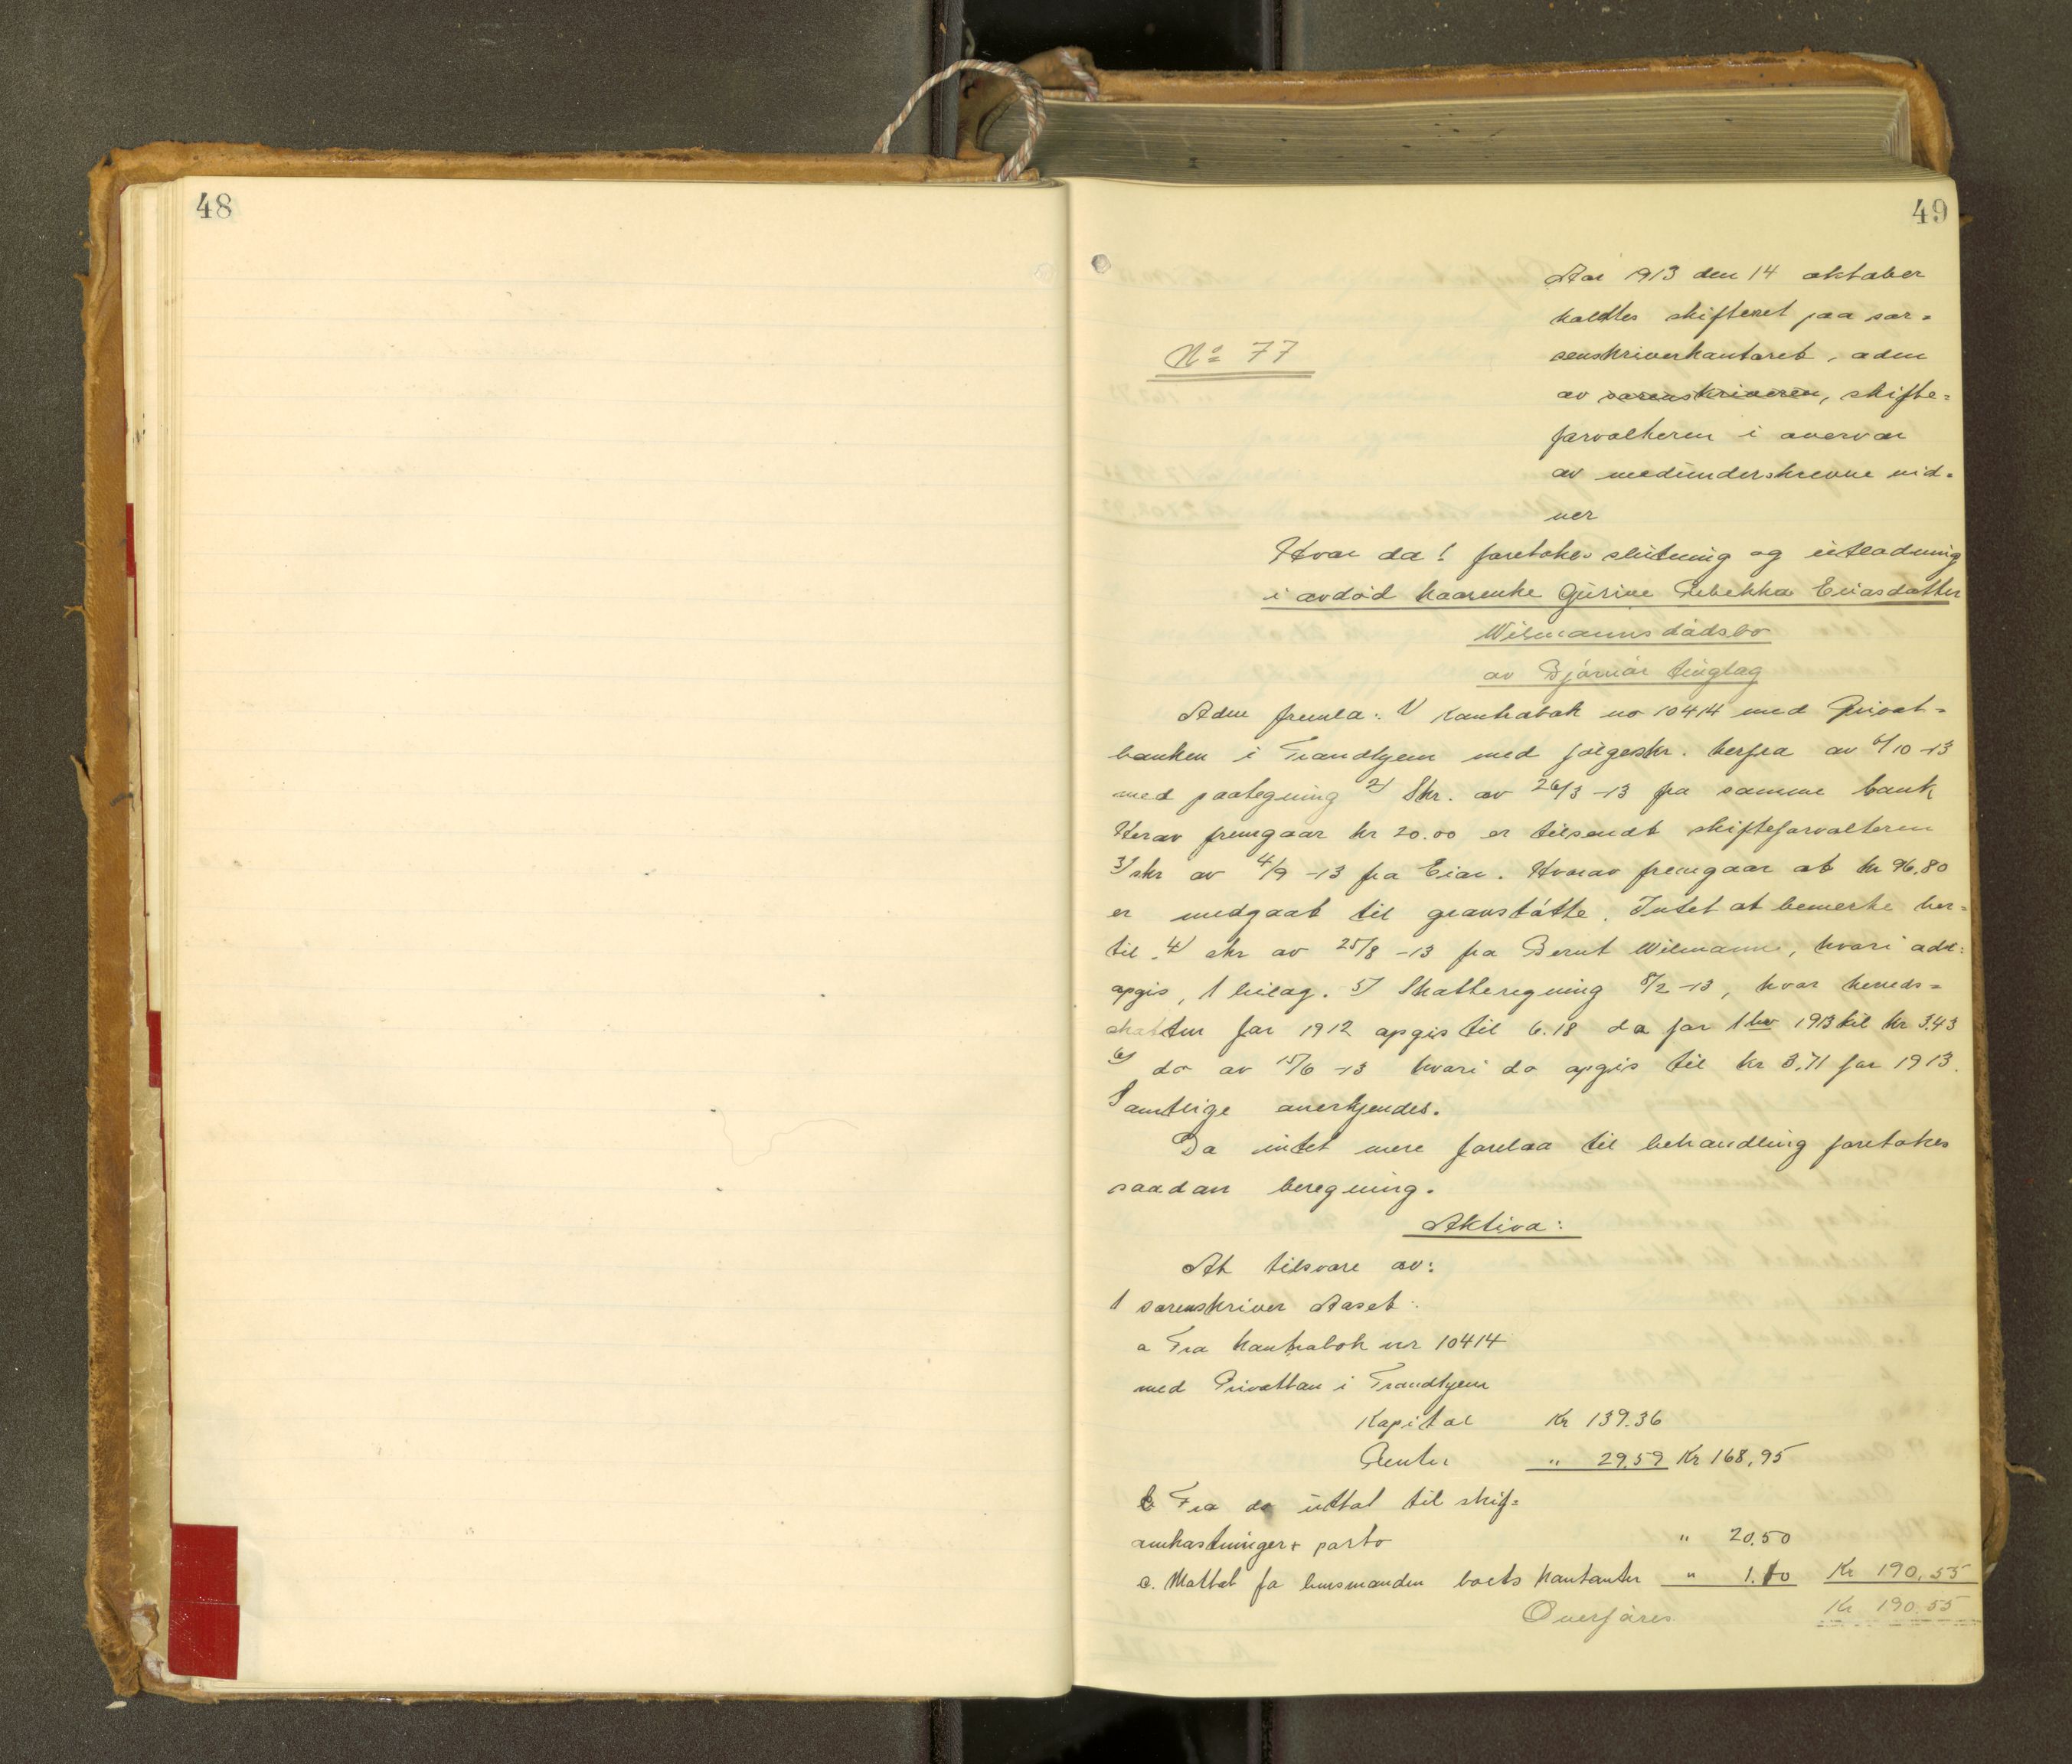 48
49
Aar 1913 den 14 oktober
holdtes skifteret paa sor=
enskriverkontoret, adm
av sorenskriveren, skifte=
forvalteren i overvær
av medunderskrevne vid=
ner
No 77
Hvor da! foretokes slutning og utlodning
i avdød kaarenke Gurine Rebekka Eliasdatter
Wilmanns dødsbo
av Bjørnør tinglag
Adm fremla: 1/ Kontrabok no 10414 med Privat=
banken i Trondhjem med følgeskr. herfra av 6/10 -13
med paategning 2/ Skr. av 26/3 -13 fra samme bank
Herav fremgaar kr 20.00 er tilsendt skifteforvalteren
3/ skr av 4/9 -13 fra Eian. Hvorav fremgaar at kr 96.80
er medgaat til gravstøtte. Intet at bemerke her=
til. 4/ skr av 25/8 -13 fra Bernt Wilmann, hvori adr:
opgis, 1 bilag. 5/ Skatteregning 8/2 -13, hvor herreds=
skatten for 1912 opgis til 6.18 do for 1 hv 1913 til kr 3.43
6/ do av 15/6 -13 hvori do opgis til kr 3.71 for 1913.
Samtlige anerkjendes.
Da intet mere forelaa til behandling foretokes
saadan beregning.
Aktiva:
At tilsvare av:
1 sorenskriver Aaset:
a Fra kontrabok nr 10414
med Privatban i Trondhjem
Kapital Kr 139.36
Renter " 29.59 Kr 168,95
b Fra do uttat til skif=
omkostninger + porto " 20.50
c. Mottat fra lensmanden boets kontanter " 1.10 Kr 190,55
Overføres Kr 190.55